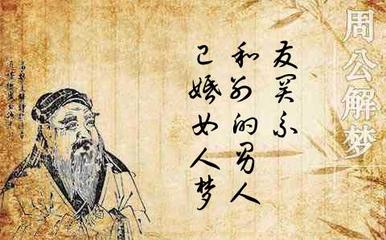 周公解梦
已婚女人梦
和别的男人
友关系